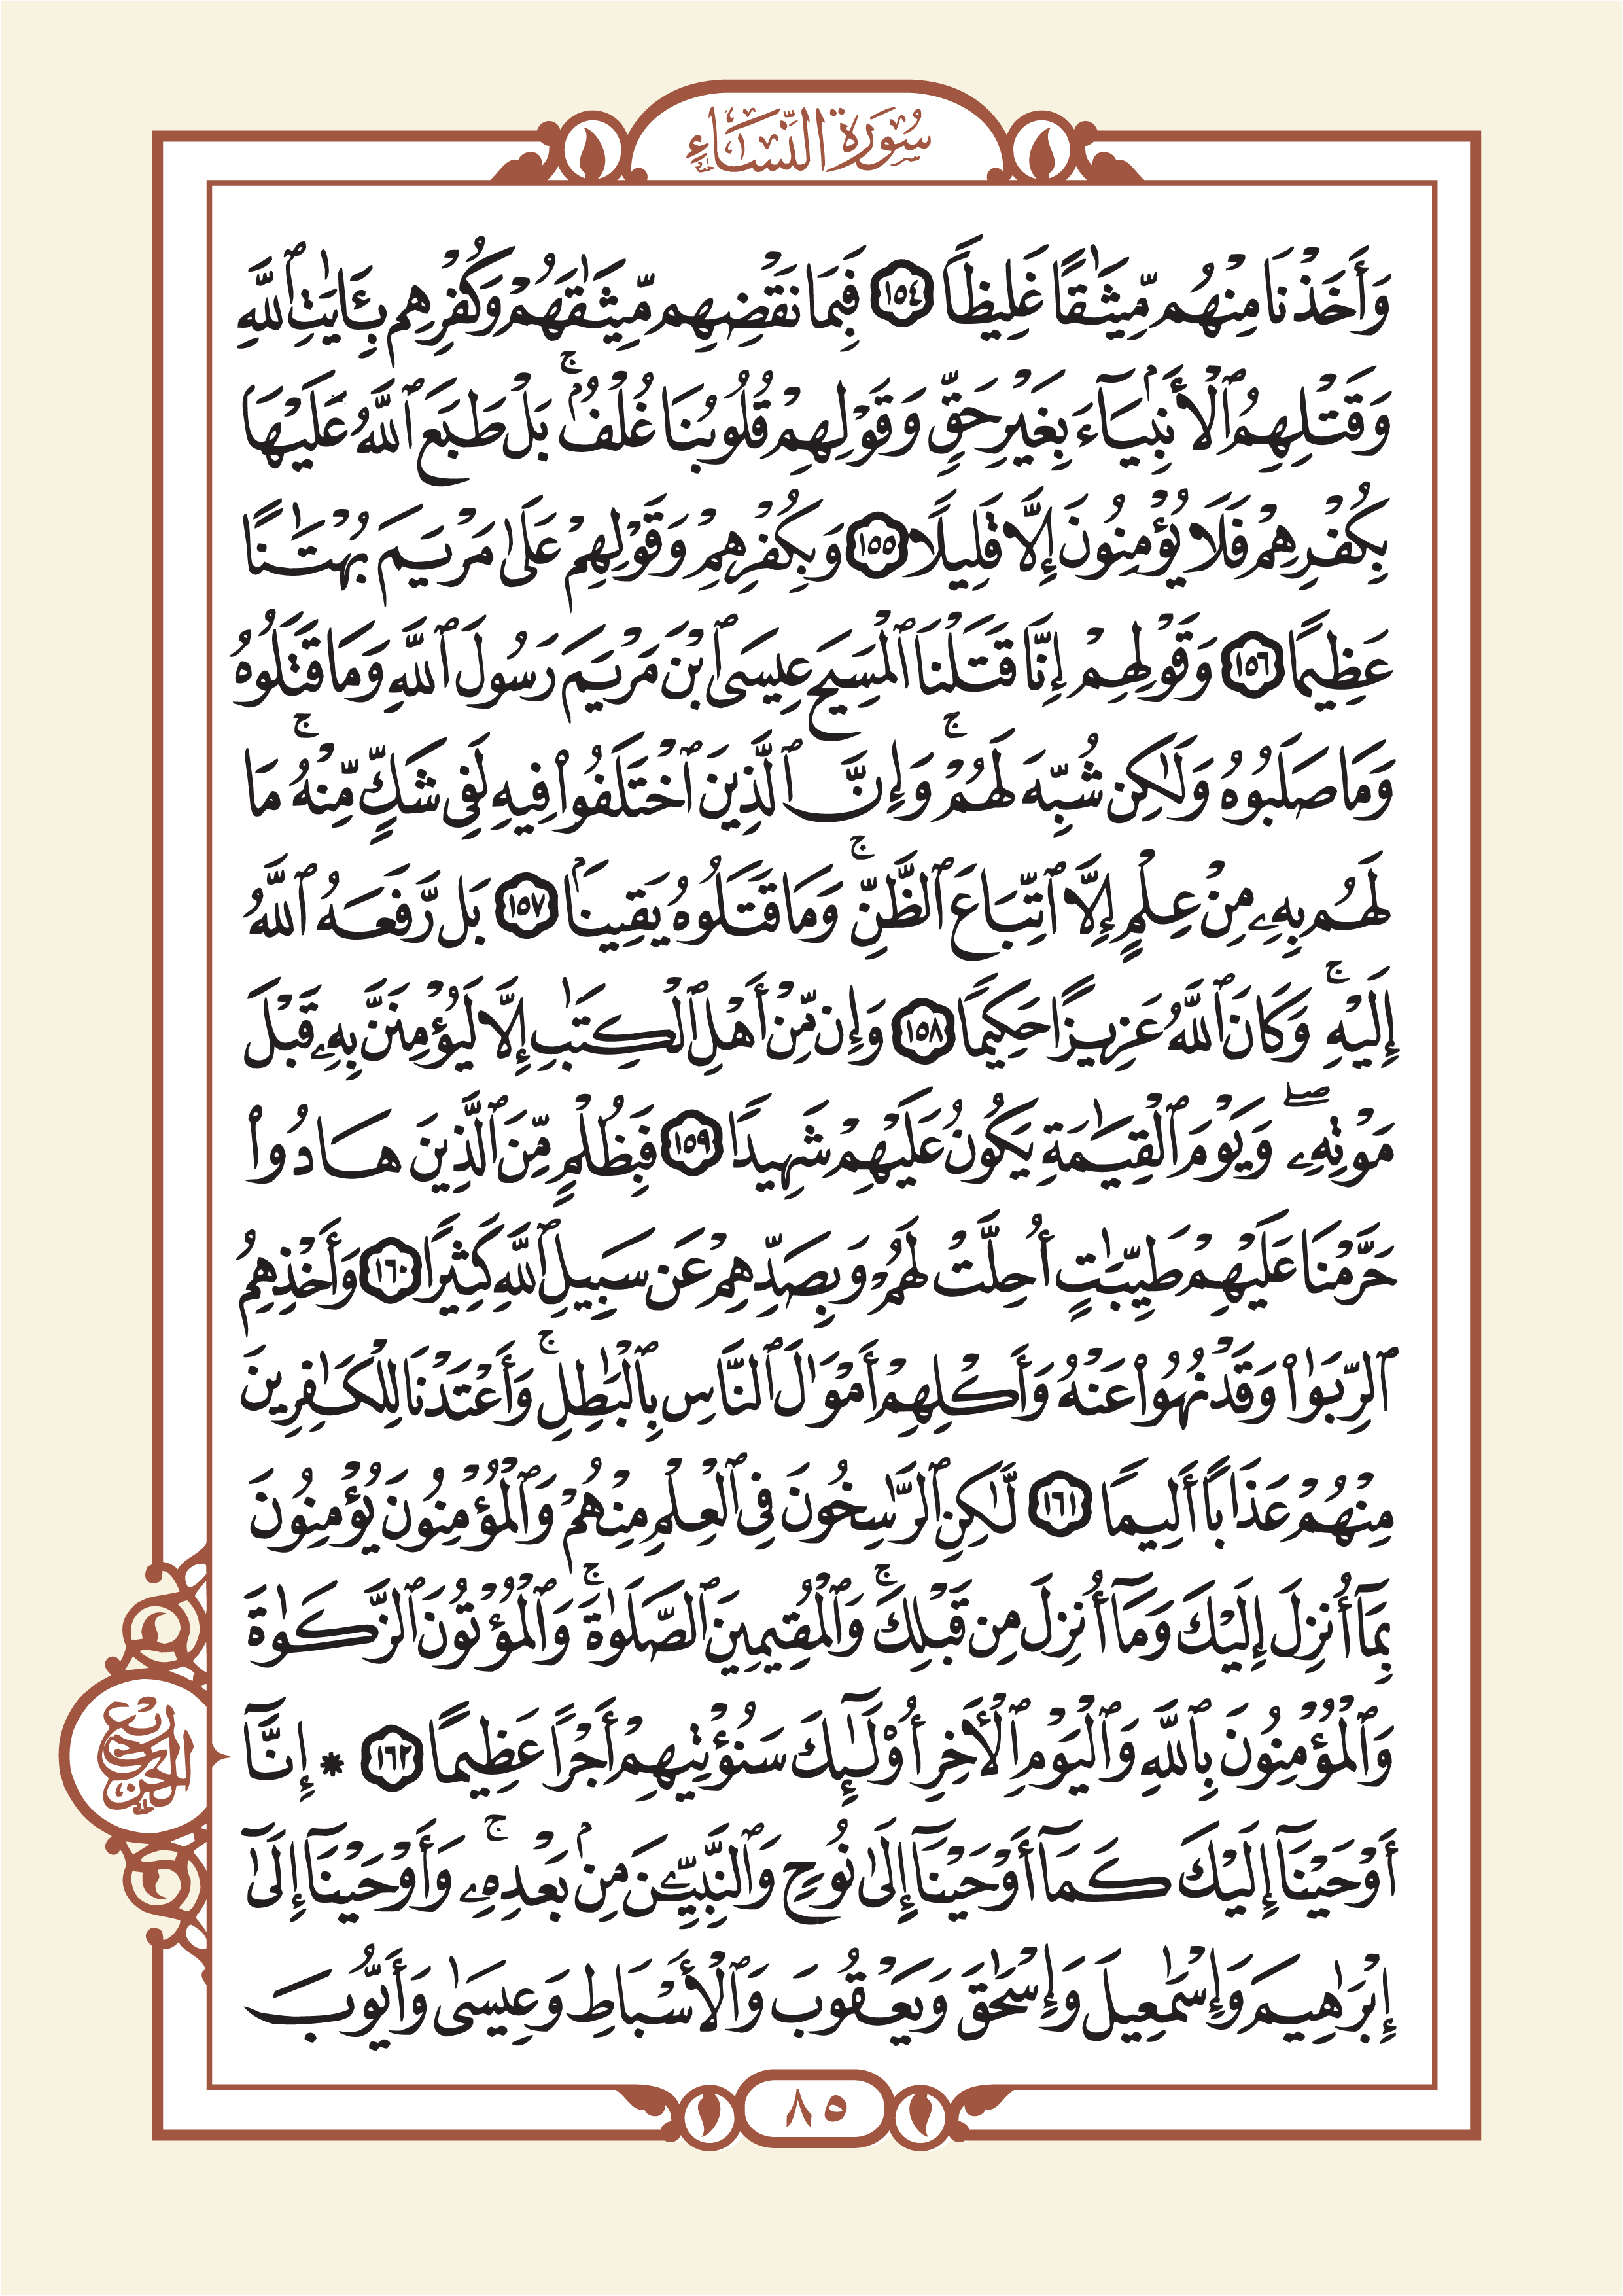 سُورَةُ النِّسَاءِ
وَأَخَذْنَا مِنْهُم مِّيثَٰقًا غَلِيظًا ١٥٤ فَبِمَا نَقْضِهِم مِّيثَٰقَهُمْ وَكُفْرِهِم بِـَٔايَٰتِ ٱللَّهِ
وَقَتْلِهِمُ ٱلْأَنۢبِيَآءَ بِغَيْرِ حَقٍّ وَقَوْلِهِمْ قُلُوبُنَا غُلْفُۢ ۚ بَلْ طَبَعَ ٱللَّهُ عَلَيْهَا
بِكُفْرِهِمْ فَلَا يُؤْمِنُونَ إِلَّا قَلِيلًا ١٥٥ وَبِكُفْرِهِمْ وَقَوْلِهِمْ عَلَىٰ مَرْيَمَ بُهْتَٰنًا
عَظِيمًا ١٥٦ وَقَوْلِهِمْ إِنَّا قَتَلْنَا ٱلْمَسِيحَ عِيسَى ٱبْنَ مَرْيَمَ رَسُولَ ٱللَّهِ وَمَا قَتَلُوهُ
وَمَا صَلَبُوهُ وَلَٰكِن شُبِّهَ لَهُمْ ۚ وَإِنَّ ٱلَّذِينَ ٱخْتَلَفُوا۟ فِيهِ لَفِى شَكٍّ مِّنْهُ ۚ مَا
لَهُم بِهِۦ مِنْ عِلْمٍ إِلَّا ٱتِّبَاعَ ٱلظَّنِّ ۚ وَمَا قَتَلُوهُ يَقِينَۢا ١٥٧ بَل رَّفَعَهُ ٱللَّهُ
إِلَيْهِ ۚ وَكَانَ ٱللَّهُ عَزِيزًا حَكِيمًا ١٥٨ وَإِن مِّنْ أَهْلِ ٱلْكِتَٰبِ إِلَّا لَيُؤْمِنَنَّ بِهِۦ قَبْلَ
مَوْتِهِۦ ۖ وَيَوْمَ ٱلْقِيَٰمَةِ يَكُونُ عَلَيْهِمْ شَهِيدًا ١٥٩ فَبِظُلْمٍ مِّنَ ٱلَّذِينَ هَادُوا۟
حَرَّمْنَا عَلَيْهِمْ طَيِّبَٰتٍ أُحِلَّتْ لَهُمْ وَبِصَدِّهِمْ عَن سَبِيلِ ٱللَّهِ كَثِيرًا ١٦٠ وَأَخْذِهِمُ
ٱلرِّبَوٰا۟ وَقَدْ نُهُوا۟ عَنْهُ وَأَكْلِهِمْ أَمْوَٰلَ ٱلنَّاسِ بِٱلْبَٰطِلِ ۚ وَأَعْتَدْنَا لِلْكَٰفِرِينَ
مِنْهُمْ عَذَابًا أَلِيمًا ١٦١ لَّٰكِنِ ٱلرَّٰسِخُونَ فِى ٱلْعِلْمِ مِنْهُمْ وَٱلْمُؤْمِنُونَ يُؤْمِنُونَ
بِمَآ أُنزِلَ إِلَيْكَ وَمَآ أُنزِلَ مِن قَبْلِكَ ۚ وَٱلْمُقِيمِينَ ٱلصَّلَوٰةَ ۚ وَٱلْمُؤْتُونَ ٱلزَّكَوٰةَ
وَٱلْمُؤْمِنُونَ بِٱللَّهِ وَٱلْيَوْمِ ٱلْأَخِرِ أُو۟لَٰٓئِكَ سَنُؤْتِيهِمْ أَجْرًا عَظِيمًا ١٦٢ * إِنَّآ
أَوْحَيْنَآ إِلَيْكَ كَمَآ أَوْحَيْنَآ إِلَىٰ نُوحٍ وَٱلنَّبِيِّـۧنَ مِنۢ بَعْدِهِۦ ۚ وَأَوْحَيْنَآ إِلَىٰٓ
إِبْرَٰهِيمَ وَإِسْمَٰعِيلَ وَإِسْحَٰقَ وَيَعْقُوبَ وَٱلْأَسْبَاطِ وَعِيسَىٰ وَأَيُّوبَ
ربع الحزب
٨٥